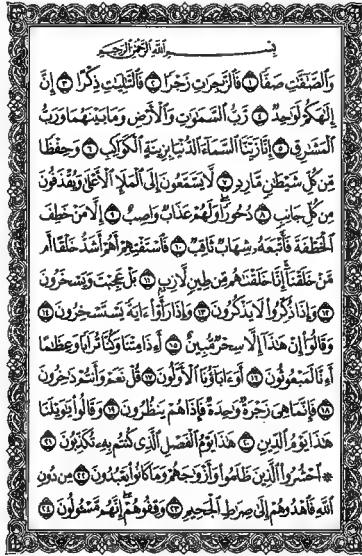 بِسْمِ اللَّهِ الرَّحْمَٰنِ الرَّحِيمِ
وَالصَّٰٓفَّٰتِ صَفًّا ١ فَالزَّٰجِرَٰتِ زَجْرًا ٢ فَالتَّٰلِيَٰتِ ذِكْرًا ٣ إِنَّ
إِلَٰهَكُمْ لَوَٰحِدٌ ٤ رَّبُّ السَّمَٰوَٰتِ وَالْأَرْضِ وَمَا بَيْنَهُمَا وَرَبُّ
الْمَشَٰرِقِ ٥ إِنَّا زَيَّنَّا السَّمَآءَ الدُّنْيَا بِزِينَةٍ الْكَوَاكِبِ ٦ وَحِفْظًا
مِّن كُلِّ شَيْطَٰنٍ مَّارِدٍ ٧ لَّا يَسَّمَّعُونَ إِلَى الْمَلَإِ الْأَعْلَىٰ وَيُقْذَفُونَ
مِن كُلِّ جَانِبٍ ٨ دُحُورًا ۖ وَلَهُمْ عَذَابٌ وَاصِبٌ ٩ إِلَّا مَنْ خَطِفَ
الْخَطْفَةَ فَأَتْبَعَهُۥ شِهَابٌ ثَاقِبٌ ١٠ فَاسْتَفْتِهِمْ أَهُمْ أَشَدُّ خَلْقًا أَم
مَّنْ خَلَقْنَآ ۚ إِنَّا خَلَقْنَٰهُم مِّن طِينٍ لَّازِبٍۭ ١١ بَلْ عَجِبْتَ وَيَسْخَرُونَ
١٢ وَإِذَا ذُكِّرُوا۟ لَا يَذْكُرُونَ ١٣ وَإِذَا رَأَوْا۟ ءَايَةً يَسْتَسْخِرُونَ ١٤
وَقَالُوٓا۟ إِنْ هَٰذَآ إِلَّا سِحْرٌ مُّبِينٌ ١٥ أَءِذَا مِتْنَا وَكُنَّا تُرَابًا وَعِظَٰمًا
أَءِنَّا لَمَبْعُوثُونَ ١٦ أَوَءَابَآؤُنَا الْأَوَّلُونَ ١٧ قُلْ نَعَمْ وَأَنتُمْ دَٰخِرُونَ
١٨ فَإِنَّمَا هِيَ زَجْرَةٌ وَٰحِدَةٌ فَإِذَا هُمْ يَنظُرُونَ ١٩ وَقَالُوا۟ يَٰوَيْلَنَا
هَٰذَا يَوْمُ الدِّينِ ٢٠ هَٰذَا يَوْمُ الْفَصْلِ الَّذِي كُنتُم بِهِۦ تُكَذِّبُونَ ٢١
۞ احْشُرُوا۟ الَّذِينَ ظَلَمُوا۟ وَأَزْوَٰجَهُمْ وَمَا كَانُوا۟ يَعْبُدُونَ ٢٢ مِن دُونِ
اللَّهِ فَاهْدُوهُمْ إِلَىٰ صِرَٰطِ الْجَحِيمِ ٢٣ وَقِفُوهُمْ ۖ إِنَّهُم مَّسْـُٔولُونَ ٢٤